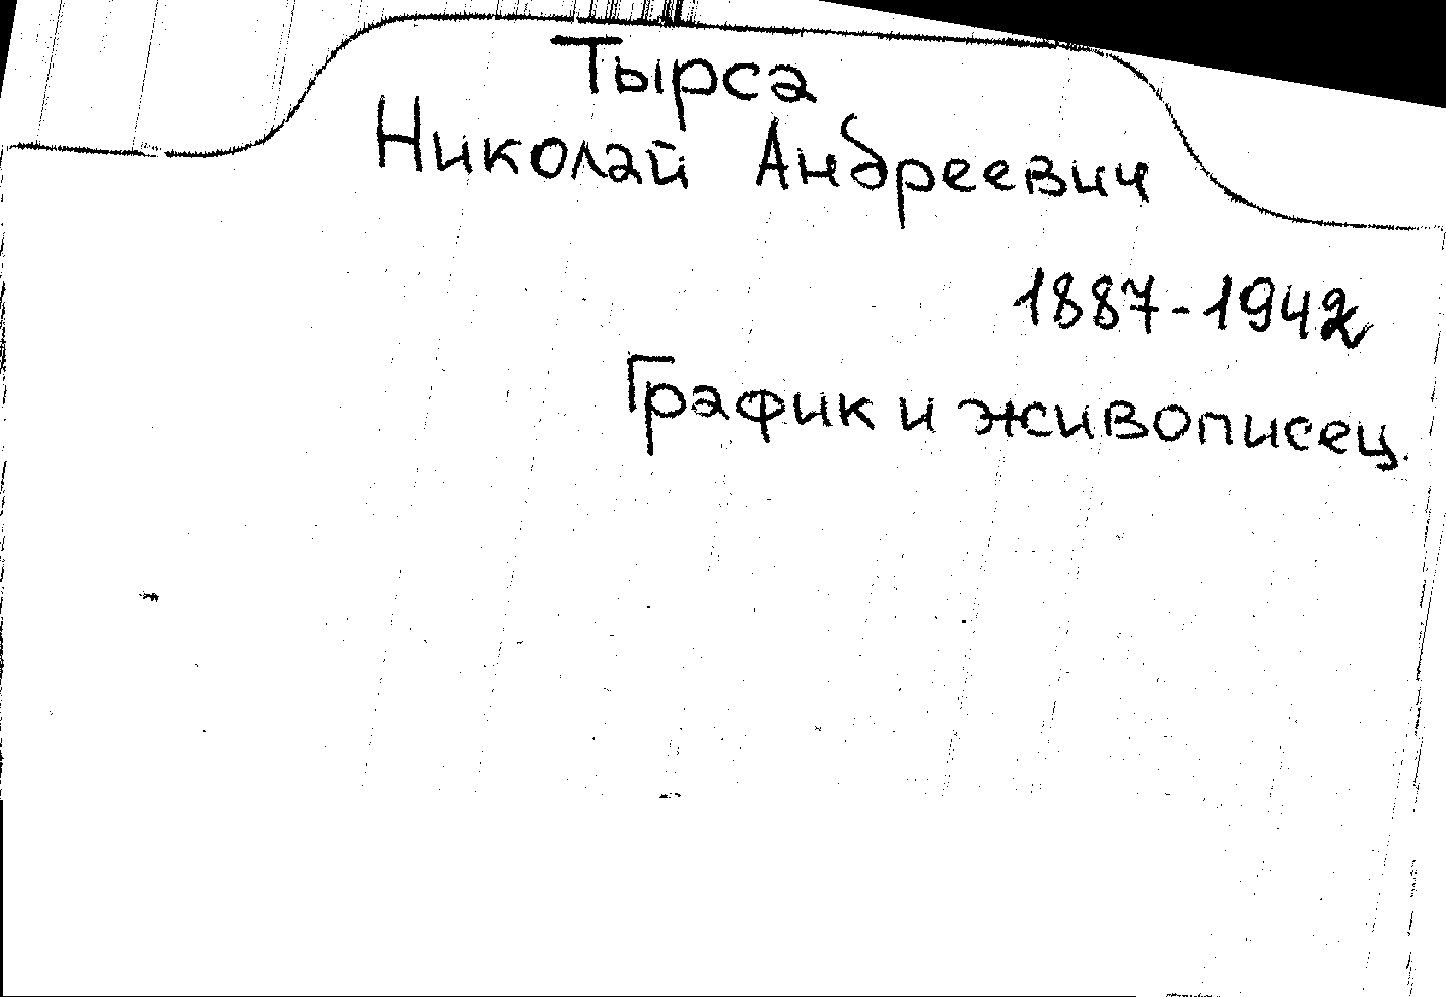 Тырса
Николай Андреевич
1887-1942
График и живописец.